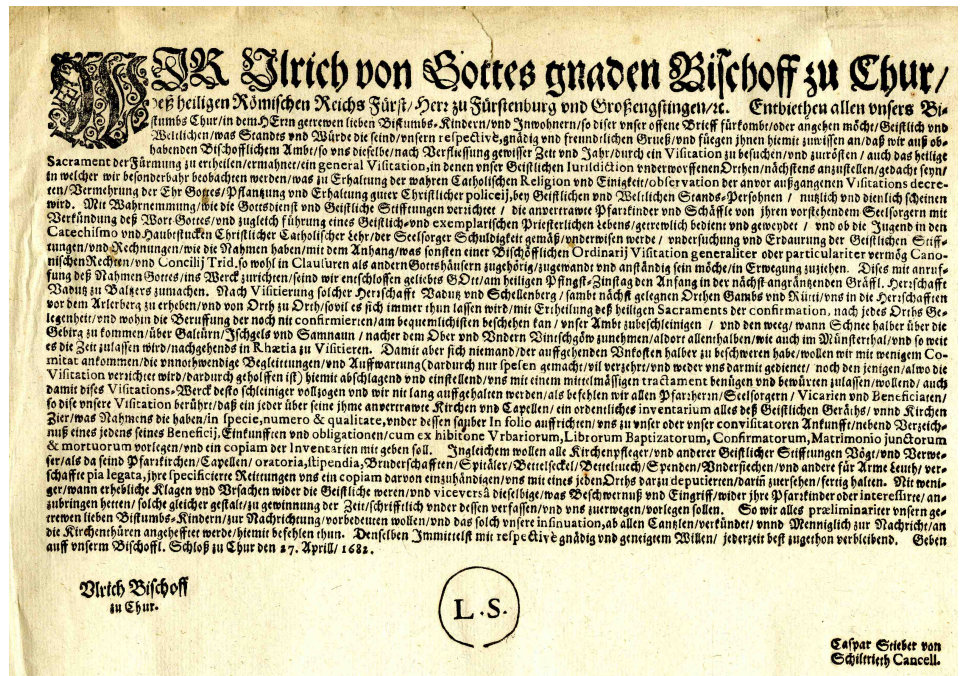 WIR Ulrich von Gottes gnaden Bischoff zu Chur/
deß heiligen Römischen Reichs Fürst/Herr zu Fürstenburg vnd Großengstingen/ꝛc. Entbiethen allen vnsers Bi-
stumbs Chur/in dem HErrn getrewen lieben Bistumbs-Kindern/vnd Inwohnern/so diser vnser offene Brieff fürkombt/oder angehen möcht/Geistlich vnd
Weltlichen/was Stands vnd Würde die seind/vnsern respectivè, gnädig vnd freundtlichen Grueß/vnd füegen jhnen hiemit zuwissen an/daß wir auß ob-
habenden Bischofflichem Ambt/so vns dieselbe/nach Verfliessung gewisser Zeit vnd Jahr/durch ein Visitation zu besuchen/vnd zutrösten/auch das heilige
Sacrament der Fürmung zu ertheilen/ermahnet/ein general Visitation, in denen vnser Geistlichen Iurisdiction vnderworffenen Orthen/nächstens anzustellen/gedacht seyn/
in welcher wir besonderbahr beobachten werden/was zu Erhaltung der wahren Catholischen Religion vnd Einigkeit/observation der anvor außgangenen Visitations decre-
ten/Vermehrung der Ehr Gottes/Pflantzung vnd Erhaltung guter Christlicher policeij, bey Geistlichen vnd Weltlichen Stands-Persohnen / nutzlich vnd dienlich scheinen
wird. Mit Wahrnemmung/wie die Gottsdienst vnd Geistliche Stifftungen verrichtet / die anvertrawte Pfarrkinder vnd Schäffle von jhren vorstehendem Seelsorgern mit
Verkündung deß Wort Gottes/vnd zugleich führung eines Geistlich-vnd exemplarischen Priesterlichen Lebens/getrewlich bedient vnd geweydet / vnd ob die Jugend in den
Catechismo vnd Haubtstucken Christlicher Catholischer Lehr/der Seelsorger Schuldigkeit gemäß/vnderwisen werde / vndersuchung vnd Erdaurung der Geistlichen Stiff-
tungen/vnd Rechnungen/wie die Nahmen haben/mit dem Anhang/was sonsten einer Bischöfflichen Ordinarij Visitation generaliter oder particulariter vermög Cano-
nischen Rechten/vnd Concilij Trid. so wohl in Clausuren als andern Gottshäusern zugehörig/zugewandt vnd anständig sein möche/in Erwegung zuziehen. Dises mit anruf-
fung deß Nahmen Gottes/ins Werck zurichten/seind wir entschlossen geliebts GOtt/am heiligen Pfingst-Zinstag den Anfang in der nächst angräntzenden Gräffl. Herrschafft
Vadutz zu Baltzers zumachen. Nach Visitierung solcher Herrschafft Vadutz vnd Schellenberg / sambt nächst gelegnen Orthen Gambs vnd Rüti/vns in die Herrschafften
vor dem Arlerberg zu erheben/vnd von Orth zu Orth/sovil es sich immer thun lassen wird/mit Ertheilung deß heiligen Sacraments der confirmation, nach jedes Orths Ge-
legenheit/vnd wohin die Beruffung der noch nit confirmierten/am bequemlichisten beschehen kan / vnser Ambt zubeschleinigen / vnd den weeg/wann Schnee halber über die
Gebirg zu kommen/über Galtürn/Ischgels vnd Samnaun / nacher dem Ober vnd Vndern Vintschgöw zunehmen/aldort allenthalben/wie auch im Münsterthal/vnd so weit
es die Zeit zulassen wird/nachgehends in Rhætia zu Visitieren. Damit aber sich niemand/der auffgehenden Vnkosten halber zu beschweren habe/wollen wir mit wenigem Co-
mitat ankommen/die vnnothwendige Begleittungen/vnd Auffwartung(dardurch nur spesen gemacht/vil verzehrt/vnd weder vns darmit gedienet/ noch den jenigen/alwo die
Visitation verrichtet wird/dardurch geholffen ist) hiemit abschlagend vnd einstellend/vns mit einem mittelmässigen tractament benügen vnd bewürten zulassen/wollend/ auch
damit dises Visitations-Werck desto schleiniger vollzogen vnd wir nit lang auffgehalten werden/als befehlen wir allen Pfarrherrn/Seelsorgern / Vicarien vnd Beneficiaten/
so dise vnsere Visitation berührt/daß ein jeder über seine jhme anvertrawte Kirchen vnd Capellen / ein ordenliches inventarium alles deß Geistlichen Geräths/ vnnd Kirchen
Zier/was Nahmens die haben/in specie, numero & qualitate, vnder dessen sauber In folio auffrichten/vns zu vnser oder vnser convisitatoren Ankunfft/nebend Verzeich-
nuß eines jedens seines Beneficij, Einkunfften vnd obligationen/cum exhibitone Vrbariorum, Librorum Baptizatorum, Confirmatorum, Matrimonio junctorum
& mortuorum vorlegen/vnd ein copiam der Inventarien mit geben soll. Ingleichem wollen alle Kirchenpfleger/vnd anderer Geistlicher Stifftungen Vögt/vnd Verwe-
ser/als da seind Pfarrkirchen/Capellen/ oratoria, stipendia, Bruderschafften/Spitäler/Bettelseckel/Betteltuech/Spenden/Vndersiechen/vnd andere für Arme Leuth/ ver-
schaffte pia legata, jhre specificierte Reittungen vns ein copiam darvon einzuhändigen/vns mit eines jeden Orths darzu deputierten/darin zuersehen/fertig halten. Mit weni-
ger/wann erhebliche Klagen vnd Vrsachen wider die Geistliche weren/vnd viceversâ dieselbige/was Beschwernuß vnd Eingriff/wider jhre Pfarrkinder oder interessirte/an-
zubringen hetten/ solche gleicher gestalt/zu gewinnung der Zeit/schrifftlich vnder dessen verfassen/vnd vns zuerwegen/vorlegen sollen. So wir alles præliminariter vnsern ge-
trewen lieben Bistumbs-Kindern/zur Nachrichtung/vorbedeuten wollen/vnd das solch vnsere insinuation, ab allen Cantzlen/verkündet/ vnnd Menniglich zur Nachricht/an
die Kirchenthüren angehefftet werde/hiemit befehlen thun. Denselben Immittelst mit respectivè gnädig vnd geneigtem Willen/ jederzeit best zugethon verbleibend. Geben
auff vnserm Bischoffl. Schloß zu Chur den 27. Aprill/1682.
Vlrich Bischoff
zu Chur.
L.S.
Caspar Stieber von
Schiltrieth Cancell.